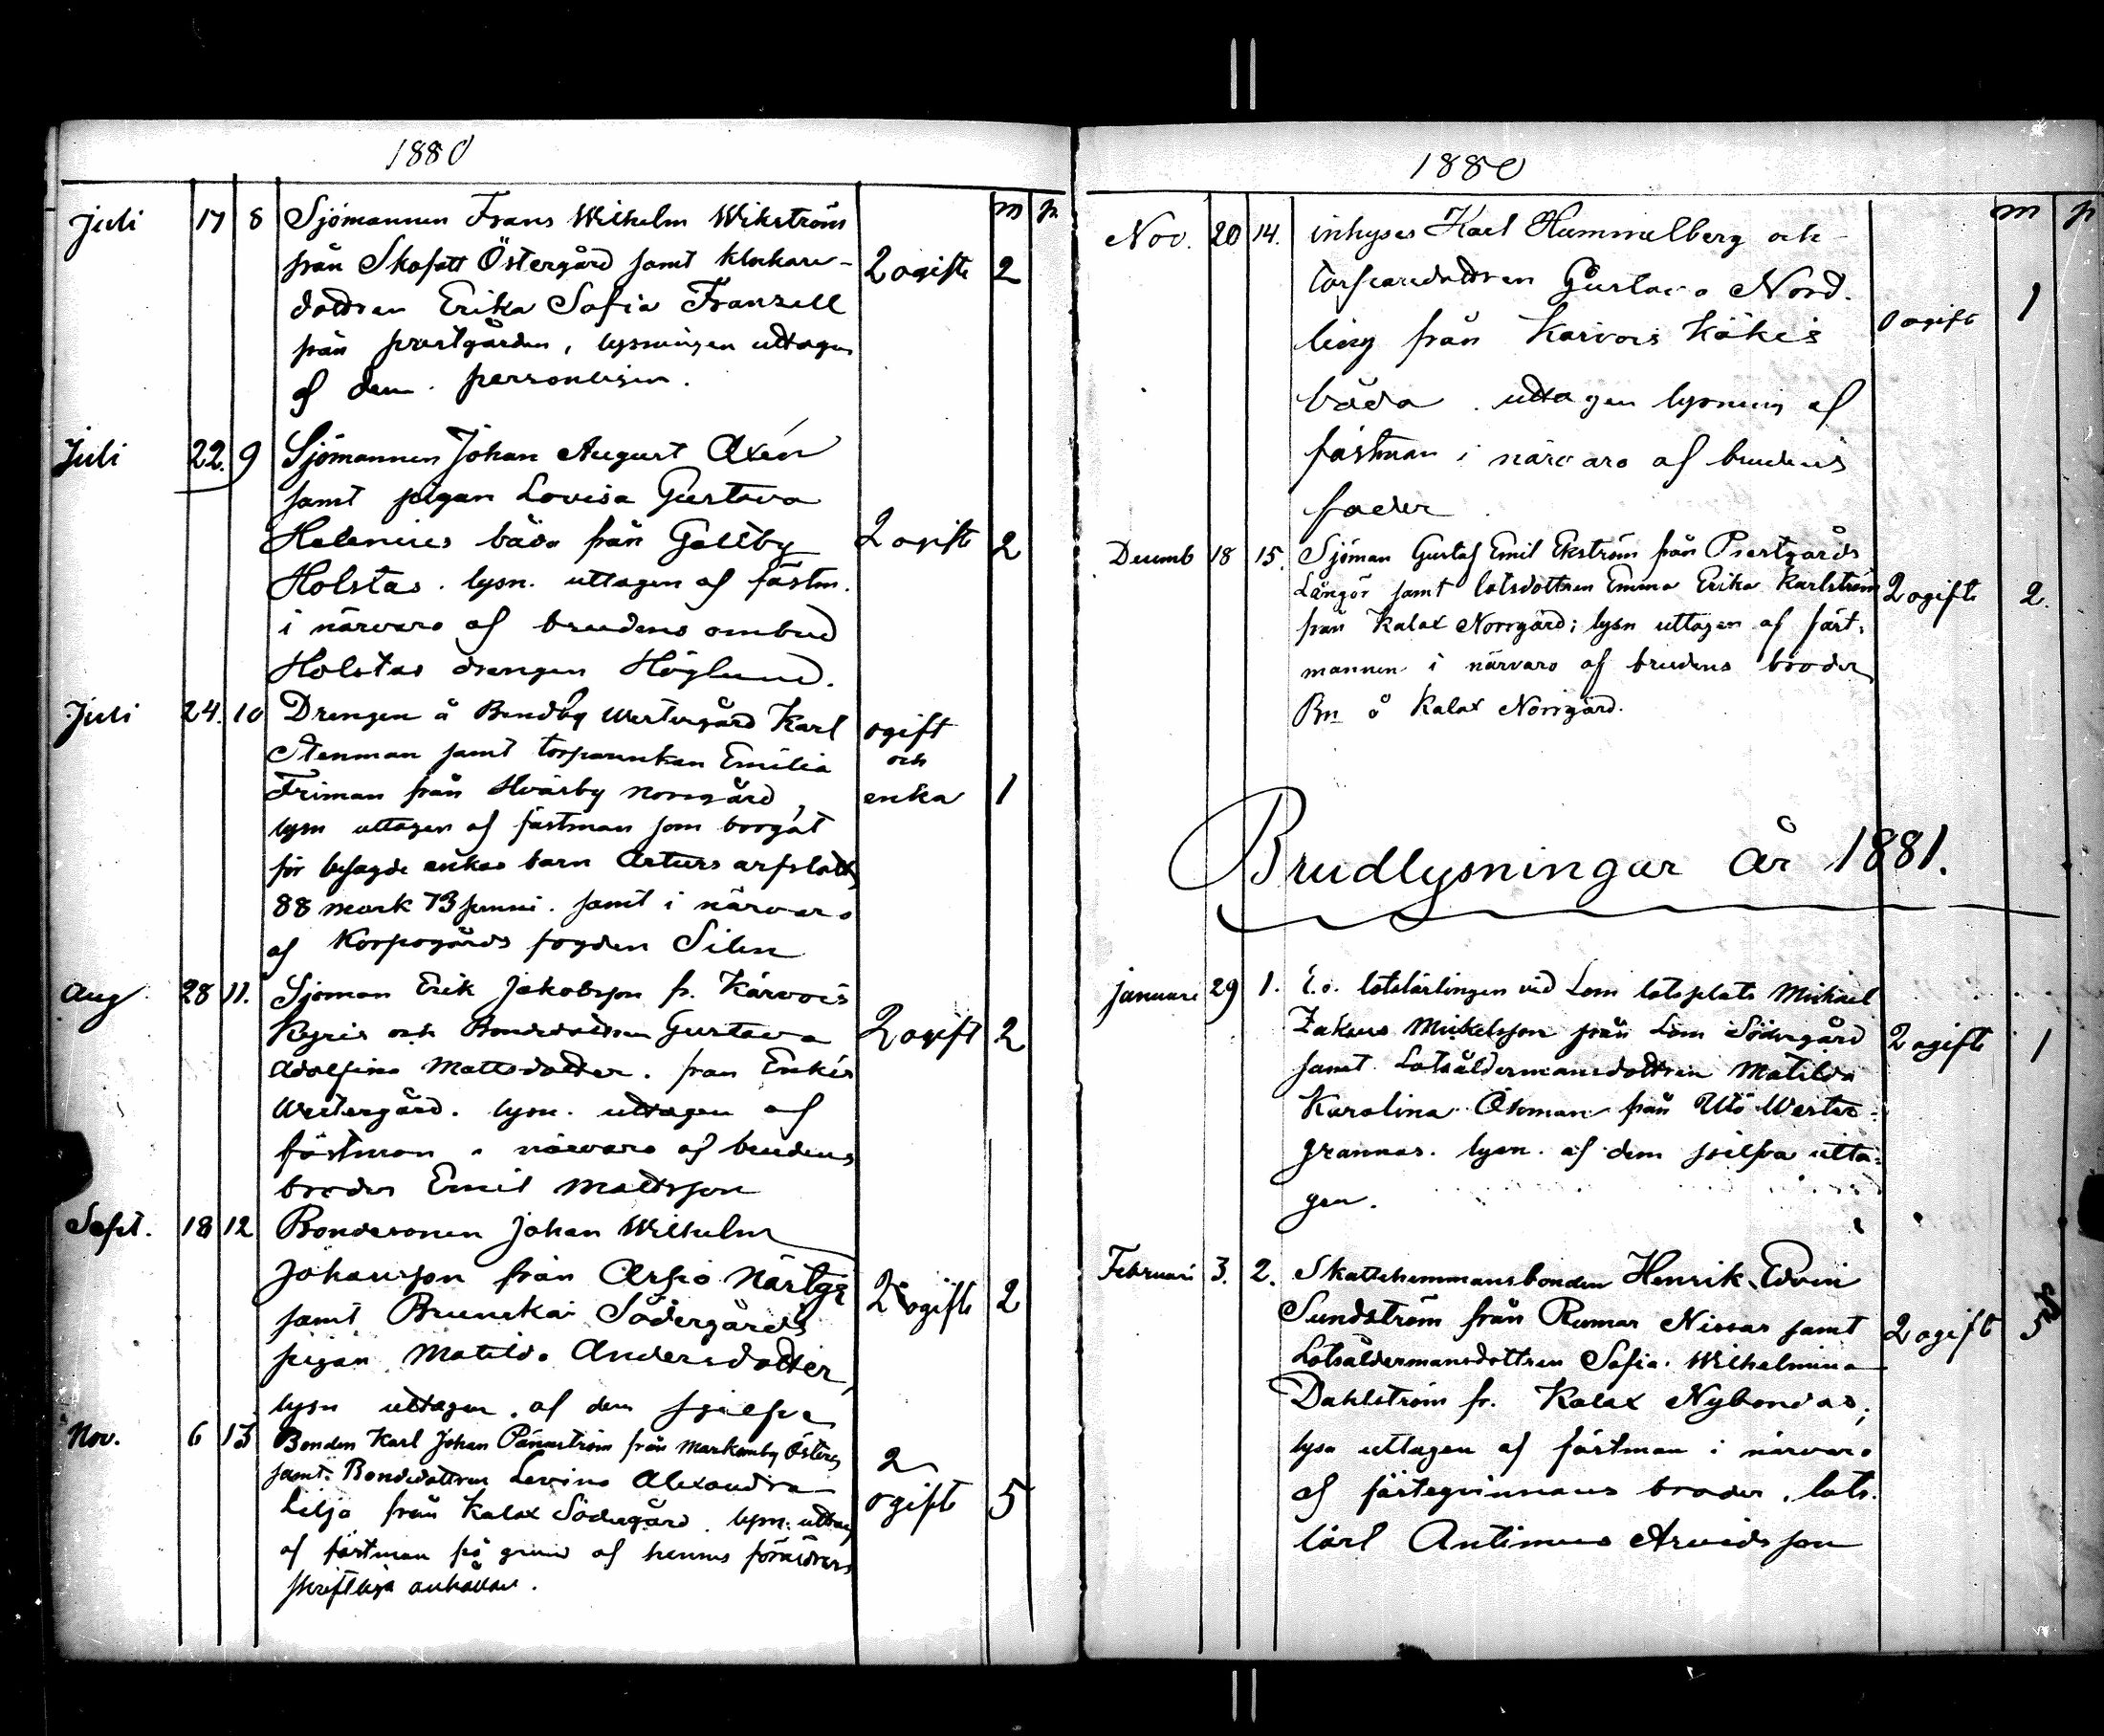 1880
m p.
Juli 17 8 Sjömannen Frans Wilhelm Wikström
från Skafatt Östergård samt klockare- 2 ogifte 2
dottren Erika Sofia Franzell
från prestgården, lysningen uttagen
af dem personligen.
Juli 22. 9 Sjömannen Johan August Axén
samt pigan Lovisa Gustava
Helenius båda från Galtby 2 ogift 2
Holstas. lysn. uttagen af fästm.
i närvaro af brudens ombud
Holstas drengen Höglund.
Juli 24. 10 Drengen å Bendby Westergård Karl ogift
Stenman samt torparenkan Emilia och
Friman från Hvarsby norrgård, enka 1
lysn uttagen af fästman som borgat
för besagde enkas barn Arturs arfslott
88 mark 73 penni. samt i närvaro
af Korpogårds fogden Silen
Aug. 28 11. Sjöman Erik Jakobsson fr. Kärvois
Kyris och Bondedottren Gustava 2 ogift 2
Adolfina Mattsdotter. från
Westergård. lysn. uttagen af
fästman i närvaro af brudens
broder Emil Mattsson
Sept. 18 12 Bondesonen Johan Wilhelm
Johansson från
samt Brunskär Södergårds 2 ogifte 2
pigan Matilda Andersdotter,
lysn uttagen af dem sjelfva
Nov. 6 13 Bonden Karl Johan från Markomby Österg 2
samt Bondedottren Levina Alexandra
Lilja från Kalax Södergård. lysn. uttag ogifte 5
af fästman på grund af hennes föräldrars
skriftliga anhållan.
1880
m p
Nov. 20 14. inhyses Karl Hummelberg och
torparedottren Gustava Nord-
ling från Karvois Käkis ogift 1
båda. uttagen lysning af
fästman i närvaro af brudens
fader
Decemb 18 15. Sjöman Gustaf Emil Ekström från Prestgårds
Långör samt lotsdottren Emma Erika Karlström 2 ogifte 2.
från Kalax Norrgård; lysn uttagen af fäst-
mannen i närvaro af brudens broder
Bn å Kalax Norrgård.
Brudlysningar år 1881.
Januari 29 1. E.o. lotslärlingen vid Lom lotsplats Mickael
Zakeus Mickelsson från Lom Södergård 2 ogifte 1
samt Lotsåldermansdottren Matilda
Karolina Öhman från Utö Wester-
grannas. lysn. af dem sjelfva utta-
gen.
Februari 3. 2. Skattehemmansbonden Henrik Edvin
Sundström från Rumar Nissas samt 2 ogift 5
Lotsåldermansdottren Sofia Wilhelmina
Dahlström fr. Kalax Nybondas;
lysn uttagen af fästman i närvaro
af fästeqvinnans broder, lots-
lärl Antimus Arvidsson